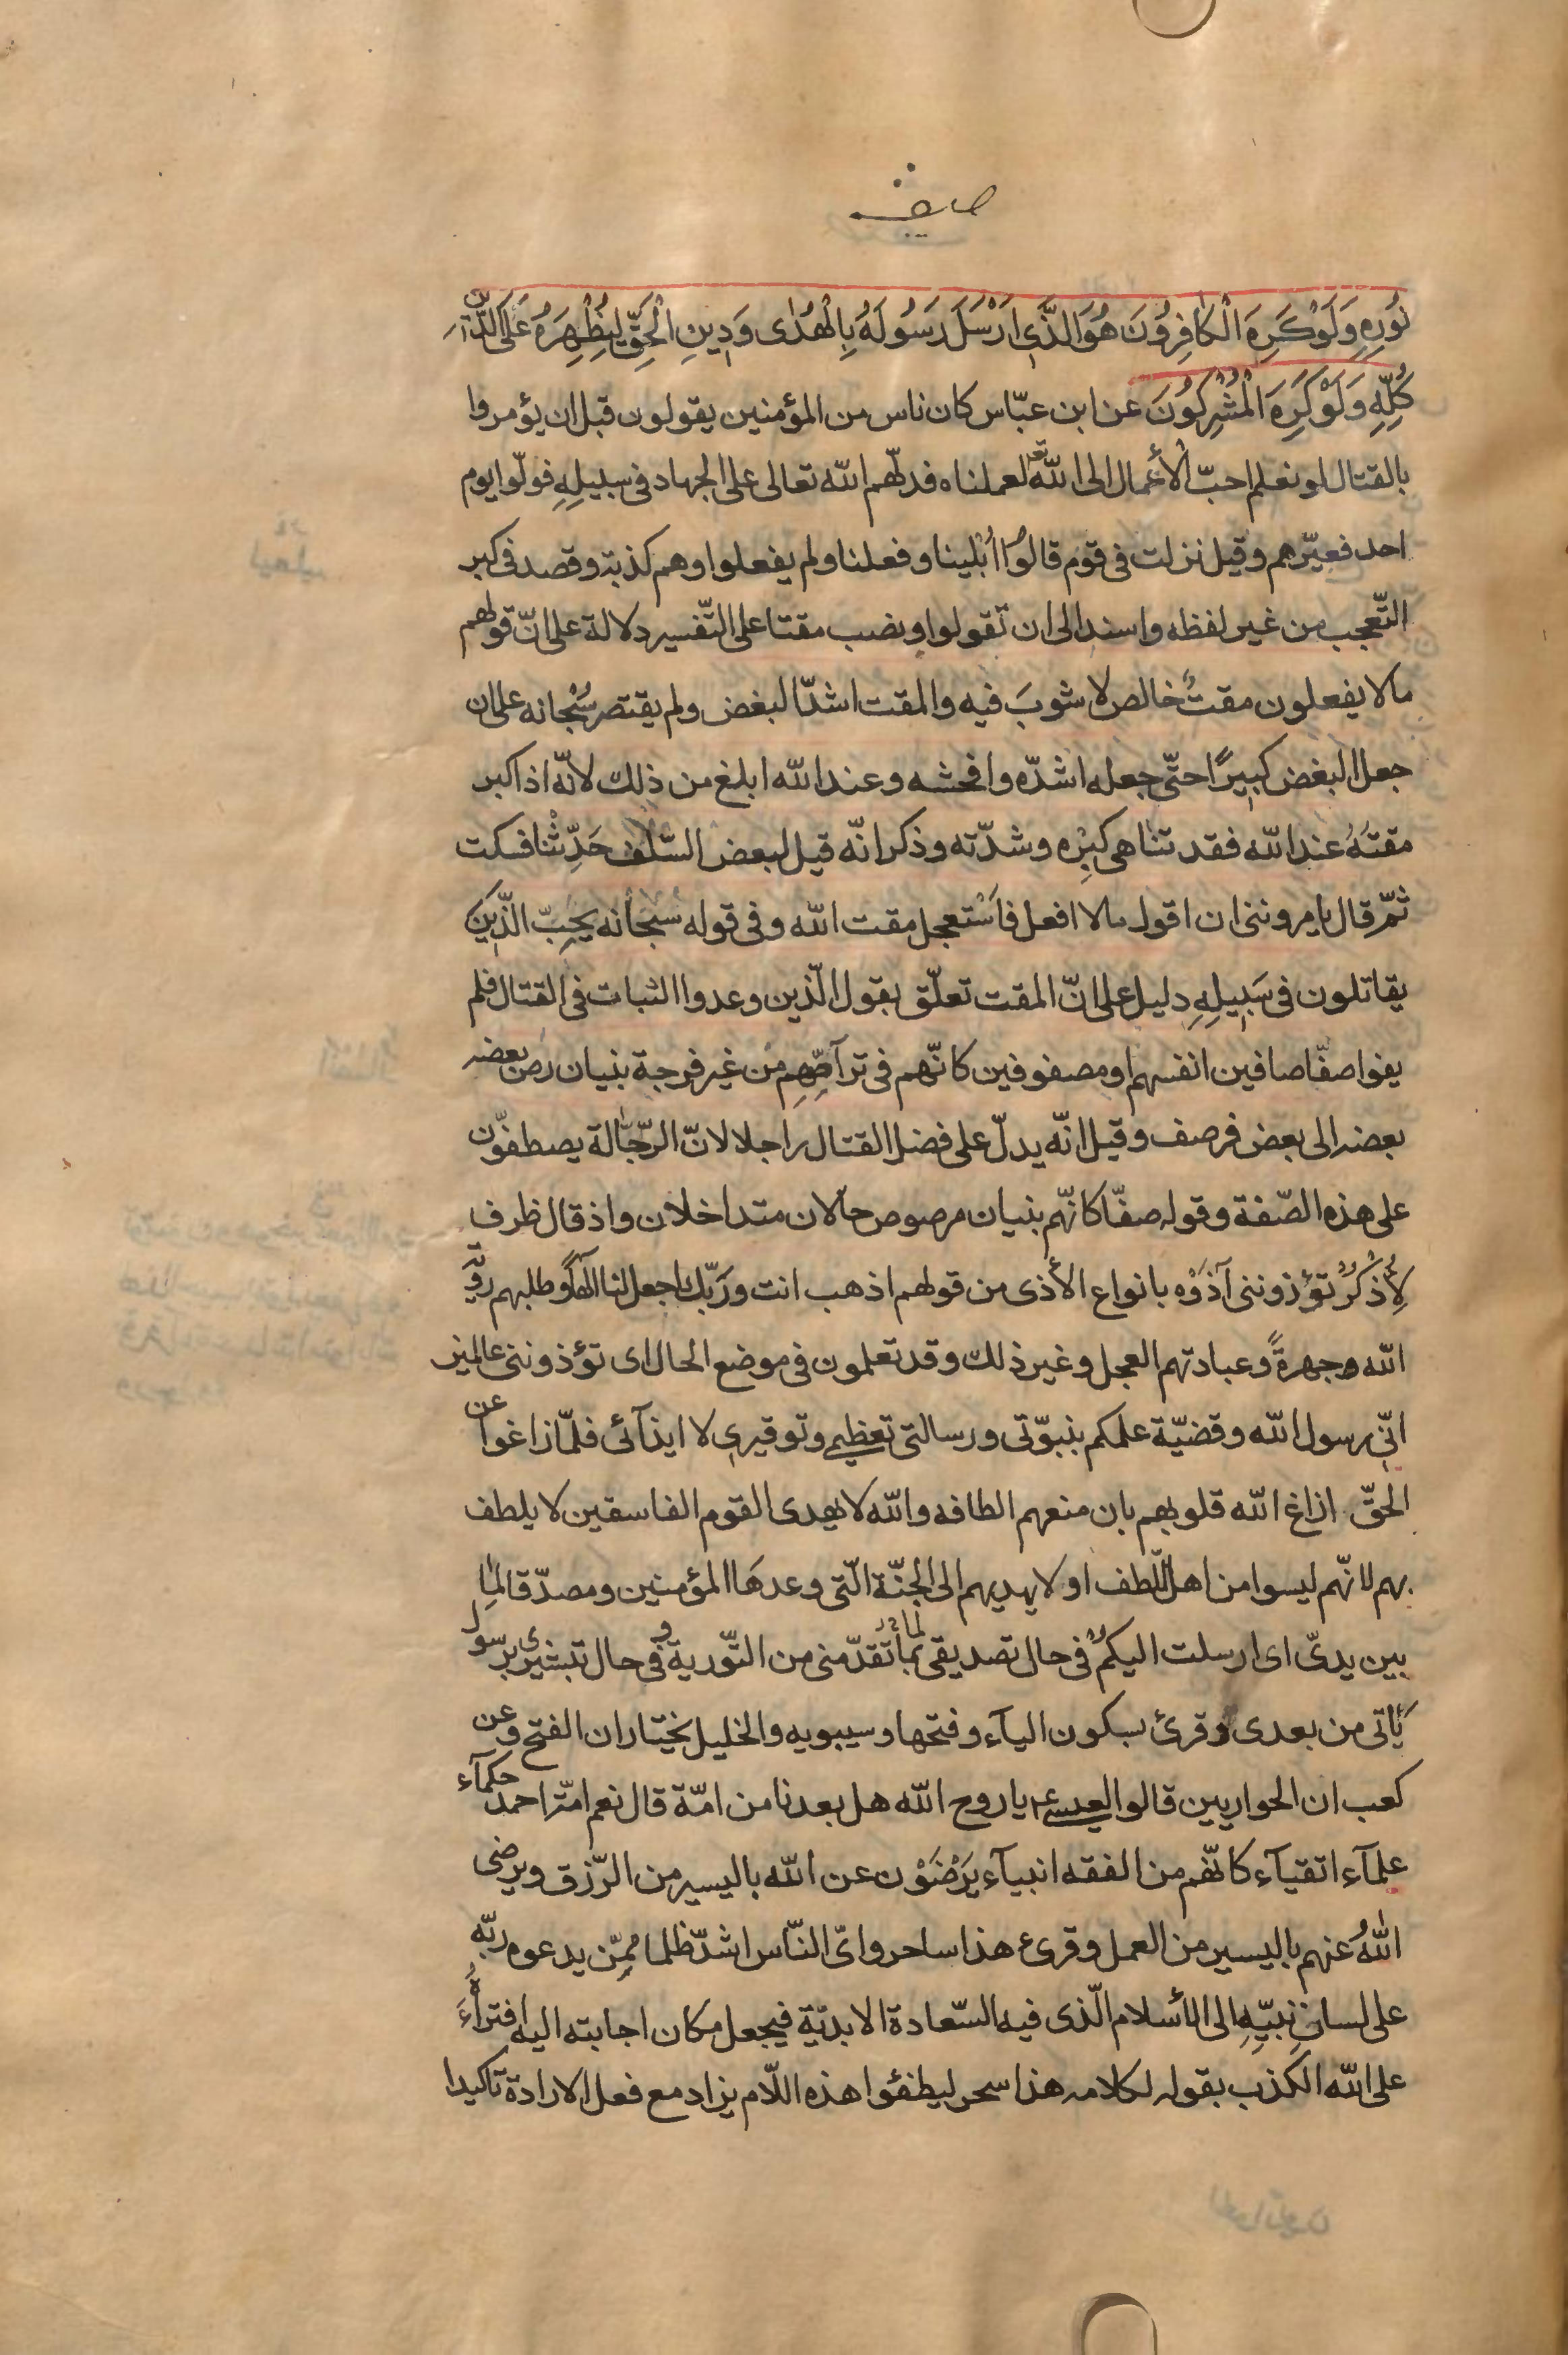 نُورِهِ وَلَوْ كَرِهَ الْكَافِرُونَ هُوَ الَّذِي اَرْسَلَ رَسُولَهُ بِالْهُدٰى وَدِينِ الْحَقِّ لِيُظْهِرَهُ عَلَى الدِّينِ
كُلِّهِ وَلَوْ كَرِهَ الْمُشْرِكُونَ عن ابن عبّاس كان ناس من المؤمنين يقولون قبل ان يؤمروا
بالقتال لو نعلم احبّ الأعمال الى الله تع لعملناه فدلّهم الله تعالى على الجهاد فى سبيلِهِ فولّوا يوم
احد فعيّرهم وقيل نزلت فى قوم قالوا اُبْلينا وفعلنا ولم يفعلوا وهم كذبة وقصد فى كبر
التّعجب من غير لفظه واسند الى ان تقولوا ونصب مقتا على التّفسير دلالة على انّ قولهم
ما لا يفعلون مقتٌ خالص لا شوبَ فيه والمقت اشدّ البغض ولم يقتصر سُبْحانه على ان
جعل البغض كبيرًا حتّى جعله اشدّه وافحشه وعند الله ابلغ من ذلك لانّه اذا كبر
مقتهُ عند الله فقد تناهى كبِرْه وشدّته وذكر انّه قيل لبعض السّلف حَدِّثْنا فسكت
ثمّ قال تامرونني ان اقول ما لا افعل فاَسْتعجل مقت الله وفى قوله سبحانه يحِبّ الّذين
يقاتلون فى سَبِيلِهِ دليل على انّ المقت تعلّق بقول الّذين وعدوا الثبات فى القتال فلم
يفوا صفّا صافين انفسهم او مصفوفين كانّهم فى ترآصّهِم من غير فرجة بنيان رصّ بعضه
بعضه الى بعض فرصف وقيل انّه يدلّ على فضل القتال راجلا لانّ الرجّالة يصطفّون
على هذه الصّفة وقوله صفّا كانّهم بنيان مرصوص حالان متداخلان واذ قال ظرف
لاِذْكُرْ تؤذونني آذَوْه بانواع الأذى من قولهم اذهب انت ورَبّك اجعل لنا الهًا وطلبهم رؤية
الله جهرةً وعبادتهم العجل وغير ذلك وقد تعلمون فى موضع الحال اى تؤذونني عالمين
انّي رسول الله وقضيّة علمكم بنبوّتى ورسالتى تعظيمى وتوقيرى لا ايذآئى فلمّا زاغوا عن
الحقّ ازاغ الله قلوبهم بان منعهم الطافه والله لا يهدى القوم الفاسقين لا يلطف
بهم لانّهم ليسوا من اهل اللّطف او لا يهديهم الى الجنّة الّتى وعدهَا المؤمنين ومصدّقا لِما
بين يدىّ اى ارسلت اليكم فى حال تصديقى لما تقدّمنى من التّورية وفى حال تبشيرى برسول
يَاتى من بعدى وقرئ بسكون اليآء وفتحها وسيبويه والخليل يختاران الفتح وعن
كعب ان الحواريين قالوا لعيسى ع يا روح الله هل بعدنا من امّة قال نعم امّة احمد حكمآء
علمآء اتقيآء كانّهم من الفقه انبيآء يَرْضَوْن عن الله باليسير من الرّزق ويرضى
اللهُ عنهم باليسير من العمل وقرئ هذا ساحر واىّ النّاس اشدّ ظلما ممّن يدعوه ربّه
على لسان نبيِّهِ الى الأسلام الّذى فيه السّعادة الابديّة فيجعل مكان اجابته اليه افتراءَهُ
على الله الكذب بقوله لكلامه هذا سحر ليطفئوا هذه اللّام يزاد مع فعل الارادة تاكيدا